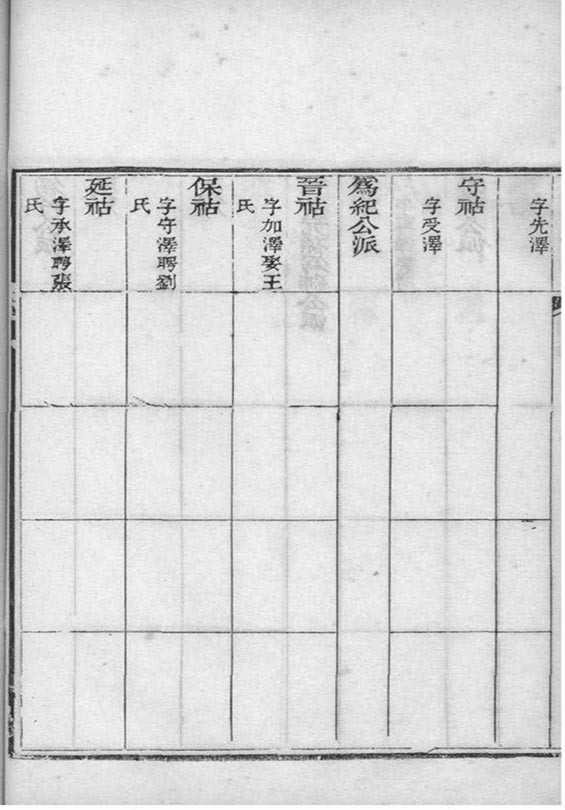 字先澤
守祜
字受澤
爲紀公派
晉祜
字加澤娶王
氏
保祜
字守澤聘劉
氏
延祜
字承澤聘張
氏